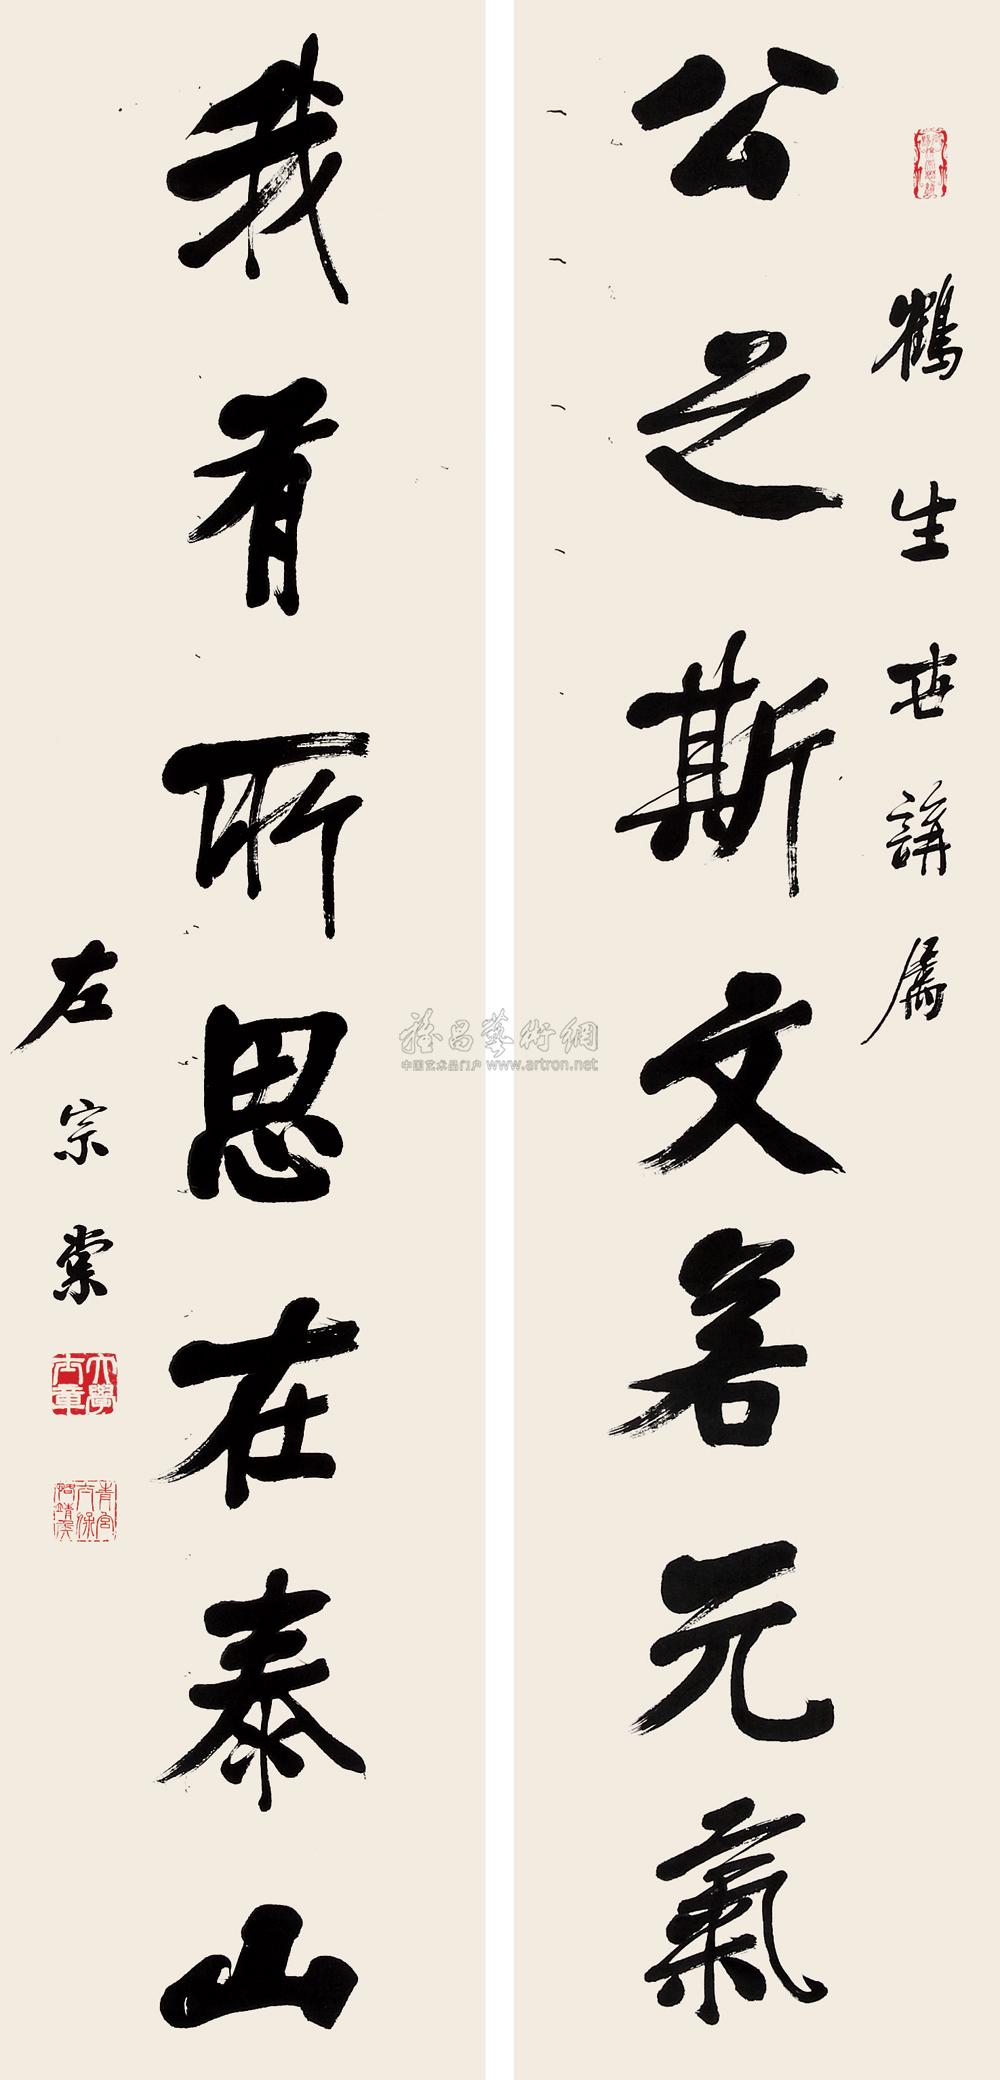 鶴生世講屬
公之斯文若元氣
我有所思在泰山
左宗棠
大學士章
青宮太保恪靖侯
雅昌藝術網
中国艺术品门户 www.artron.net